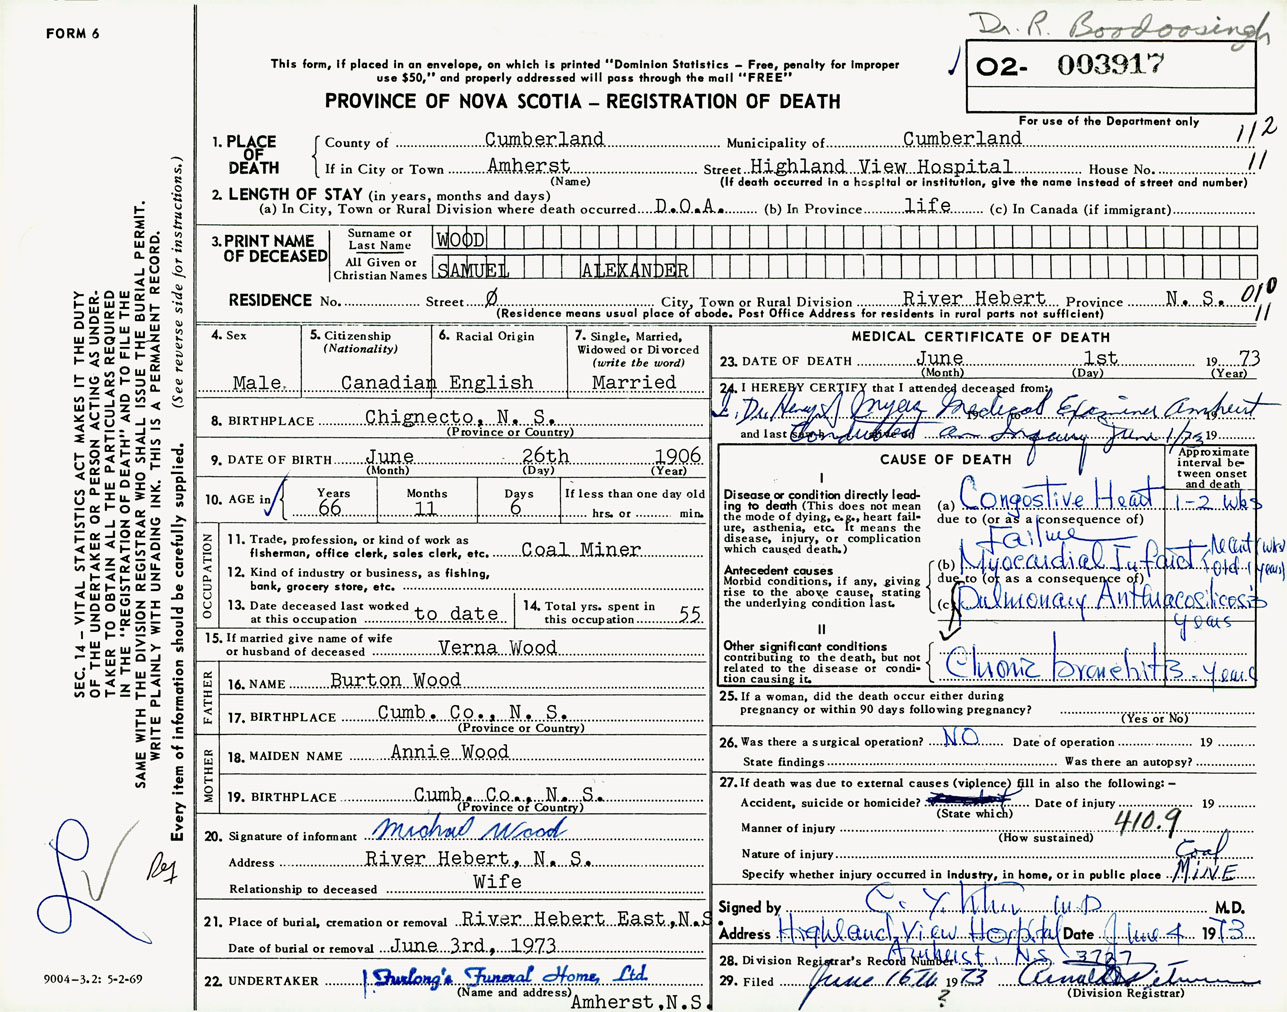 FORM 6
Dr. R. Boodoosingh
This form, if placed in an envelope, on which is printed "Dominion Statistics – Free, penalty for improper
use $50," and properly addressed will pass through the mail "FREE"
PROVINCE OF NOVA SCOTIA – REGISTRATION OF DEATH
02- 003917
For use of the Department only
1. PLACE OF DEATH
County of Cumberland Municipality of Cumberland 112
If in City or Town Amherst Street Highland View Hospital House No. 11
(Name) (If death occurred in a hospital or institution, give the name instead of street and number)
2. LENGTH OF STAY (in years, months and days)
(a) In City, Town or Rural Division where death occurred D.O.A. (b) In Province life (c) In Canada (if immigrant)
3. PRINT NAME OF DECEASED
Surname or Last Name WOOD
All Given or Christian Names SAMUEL ALEXANDER
RESIDENCE No. Street Ø City, Town or Rural Division River Hebert Province N. S. 010
(Residence means usual place of abode. Post Office Address for residents in rural parts not sufficient) 11
4. Sex
Male
5. Citizenship
(Nationality)
Canadian
6. Racial Origin
English
7. Single, Married,
Widowed or Divorced
(write the word)
Married
8. BIRTHPLACE Chignecto, N. S.
(Province or Country)
9. DATE OF BIRTH June 26th 1906
(Month) (Day) (Year)
10. AGE in
Years Months Days If less than one day old
66 11 6 hrs. or min.
OCCUPATION
11. Trade, profession, or kind of work as
fisherman, office clerk, sales clerk, etc. Coal Miner
12. Kind of industry or business, as fishing,
bank, grocery store, etc.
13. Date deceased last worked
at this occupation to date
14. Total yrs. spent in
this occupation 55
15. If married give name of wife
or husband of deceased Verna Wood
FATHER
16. NAME Burton Wood
17. BIRTHPLACE Cumb. Co., N. S.
(Province or Country)
MOTHER
18. MAIDEN NAME Annie Wood
19. BIRTHPLACE Cumb. Co., N. S.
(Province or Country)
20. Signature of informant Michael Wood
Address River Hebert, N. S.
Relationship to deceased Wife
21. Place of burial, cremation or removal River Hebert East, N.S.
Date of burial or removal June 3rd, 1973
22. UNDERTAKER Furlong's Funeral Home, Ltd.
(Name and address)
Amherst, N.S.
MEDICAL CERTIFICATE OF DEATH
23. DATE OF DEATH June 1st 1973
(Month) (Day) (Year)
24. I HEREBY CERTIFY that I attended deceased from:
I, Dr. Medical Examiner Amherst 19
and last saw Conducted an Inquiry June 1/73 19
CAUSE OF DEATH
Approximate
interval be-
tween onset
and death
I
Disease or condition directly lead-
ing to death (This does not mean
the mode of dying, e.g., heart fail-
ure, asthenia, etc. It means the
disease, injury, or complication
which caused death.)
(a) Congostive Heart 1-2 wks
due to (or as a consequence of)
Failure
Antecedent causes
Morbid conditions, if any, giving
rise to the above cause, stating
the underlying condition last.
(b) Myocardial Infarct Recent (wks)
Old (years)
due to (or as a consequence of)
(c) Pulmonary Anthracosilicosis
years
II
Other significant conditions
contributing to the death, but not
related to the disease or condi-
tion causing it.
Chronic bronchitis - years
25. If a woman, did the death occur either during
pregnancy or within 90 days following pregnancy?
(Yes or No)
26. Was there a surgical operation? NO Date of operation 19
State findings Was there an autopsy?
27. If death was due to external causes (violence) fill in also the following: –
Accident, suicide or homicide? Date of injury 19
(State which)
Manner of injury 410.9
(How sustained)
Nature of injury Coal
Specify whether injury occurred in Industry, in home, or in public place MINE
Signed by M.D. M.D.
Address Highland View Hospital Date June 4 1973
Amherst, N.S.
28. Division Registrar's Record Number 3727
29. Filed June 16th 1973
?
(Division Registrar)
SEC. 14 – VITAL STATISTICS ACT MAKES IT THE DUTY
OF THE UNDERTAKER OR PERSON ACTING AS UNDER-
TAKER TO OBTAIN ALL THE PARTICULARS REQUIRED
IN THE "REGISTRATION OF DEATH" AND TO FILE THE
SAME WITH THE DIVISION REGISTRAR WHO SHALL ISSUE THE BURIAL PERMIT.
WRITE PLAINLY WITH UNFADING INK. THIS IS A PERMANENT RECORD.
Every item of information should be carefully supplied. (See reverse side for instructions.)
Ref
9004–3.2: 5-2-69